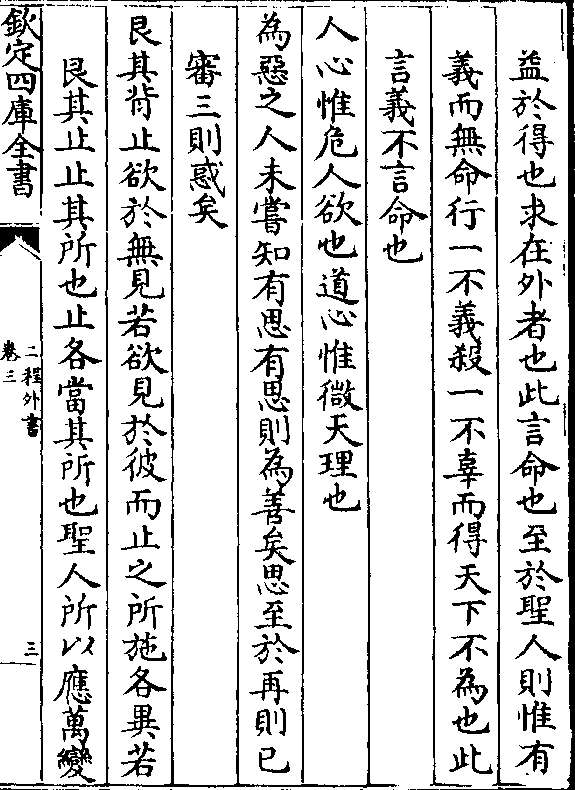 益於得也求在外者也此言命也至於聖人則惟有
義而無命行一不義殺一不辜而得天下不為也此
言義不言命也
人心惟危人欲也道心惟微天理也
為惡之人未嘗知有思有思則為善矣思至於再則已
審三則惑矣
艮其背止欲於無見若欲見於彼而止之所施各異若
艮其止止其所也止各當其所也聖人所以應萬變
欽定四庫全書
二程外書
卷三
三